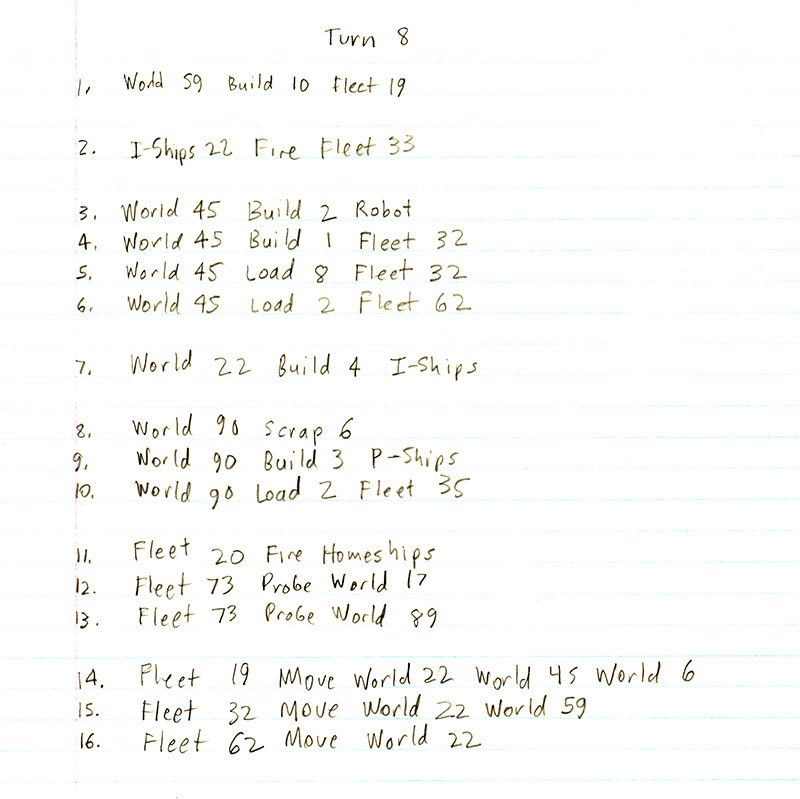 Turn 8
1. World 59 Build 10 Fleet 19
2. I-Ships 22 Fire Fleet 33
3. World 45 Build 2 Robot
4. World 45 Build 1 Fleet 32
5. World 45 Load 8 Fleet 32
6. World 45 Load 2 Fleet 62
7. World 22 Build 4 I-Ships
8. World 90 Scrap 6
9. World 90 Build 3 P-Ships
10. World 90 Load 2 Fleet 35
11. Fleet 20 Fire Homeships
12. Fleet 73 Probe World 17
13. Fleet 73 Probe World 89
14. Fleet 19 Move World 22 World 45 World 6
15. Fleet 32 Move World 22 World 59
16. Fleet 62 Move World 22